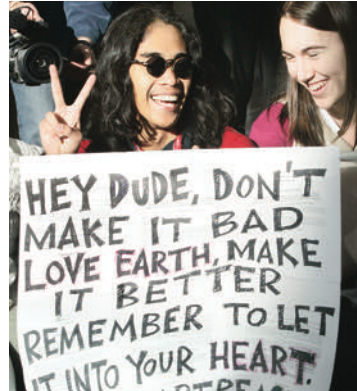 HEY DUDE, DON'T
MAKE IT BAD
LOVE EARTH, MAKE
IT BETTER
REMEMBER TO LET
IT INTO YOUR HEART